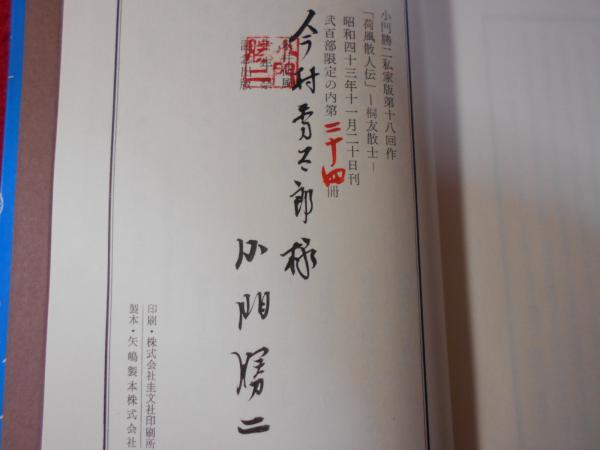 小門勝二私家版第十八回作
「荷風散人伝」—桐友散士—
昭和四十三年十一月二十日刊
弐百部限定の内第二十四冊
今村秀太郎様
小門勝二
印刷・株式会社圭文社印刷所
製本・矢嶋製本株式会社